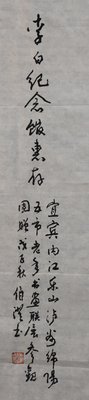 李白纪念馆惠存
宜宾内江乐山泸州绵阳
五市老年书画联展参观
团赠 癸酉秋 伯